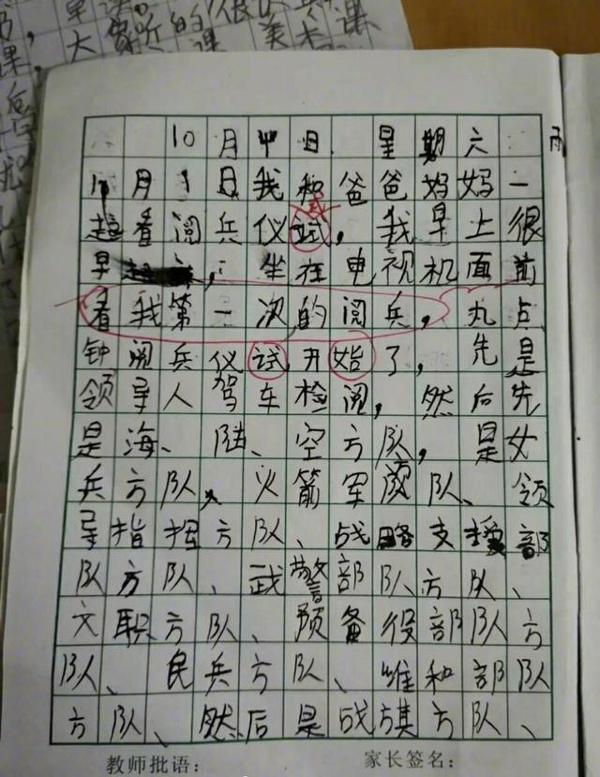 课
课 大家听的课 美术
10月 日 星期六 雨
1月1日我和爸爸妈妈一
起看阅兵仪试,我早上很
式
早起 ,坐在电视机面前
看我第一次的阅兵,九点
钟阅兵仪试开始了,先是
领导人驾车检阅,然后先
是海、陆、空方队,是女
兵方队、火箭军 队、领
导指挥方队、战略支援部
队方队、武警部队方队、
文职方队、预备役部队方
队、民兵方队、维和部队
方队、然后是战旗方队、
教师批语: 家长签名: